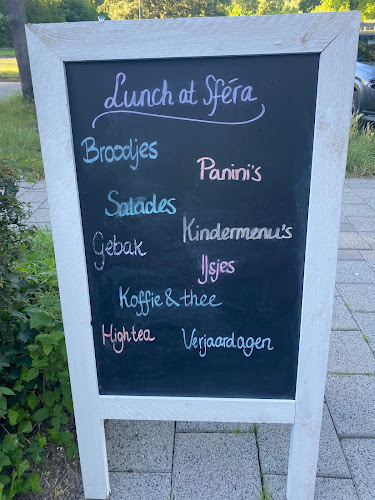 Lunch at Sféra
Broodjes
Panini's
Salades
Kindermenu's
Gebak
Ijsjes
Koffie & thee
High tea
Verjaardagen